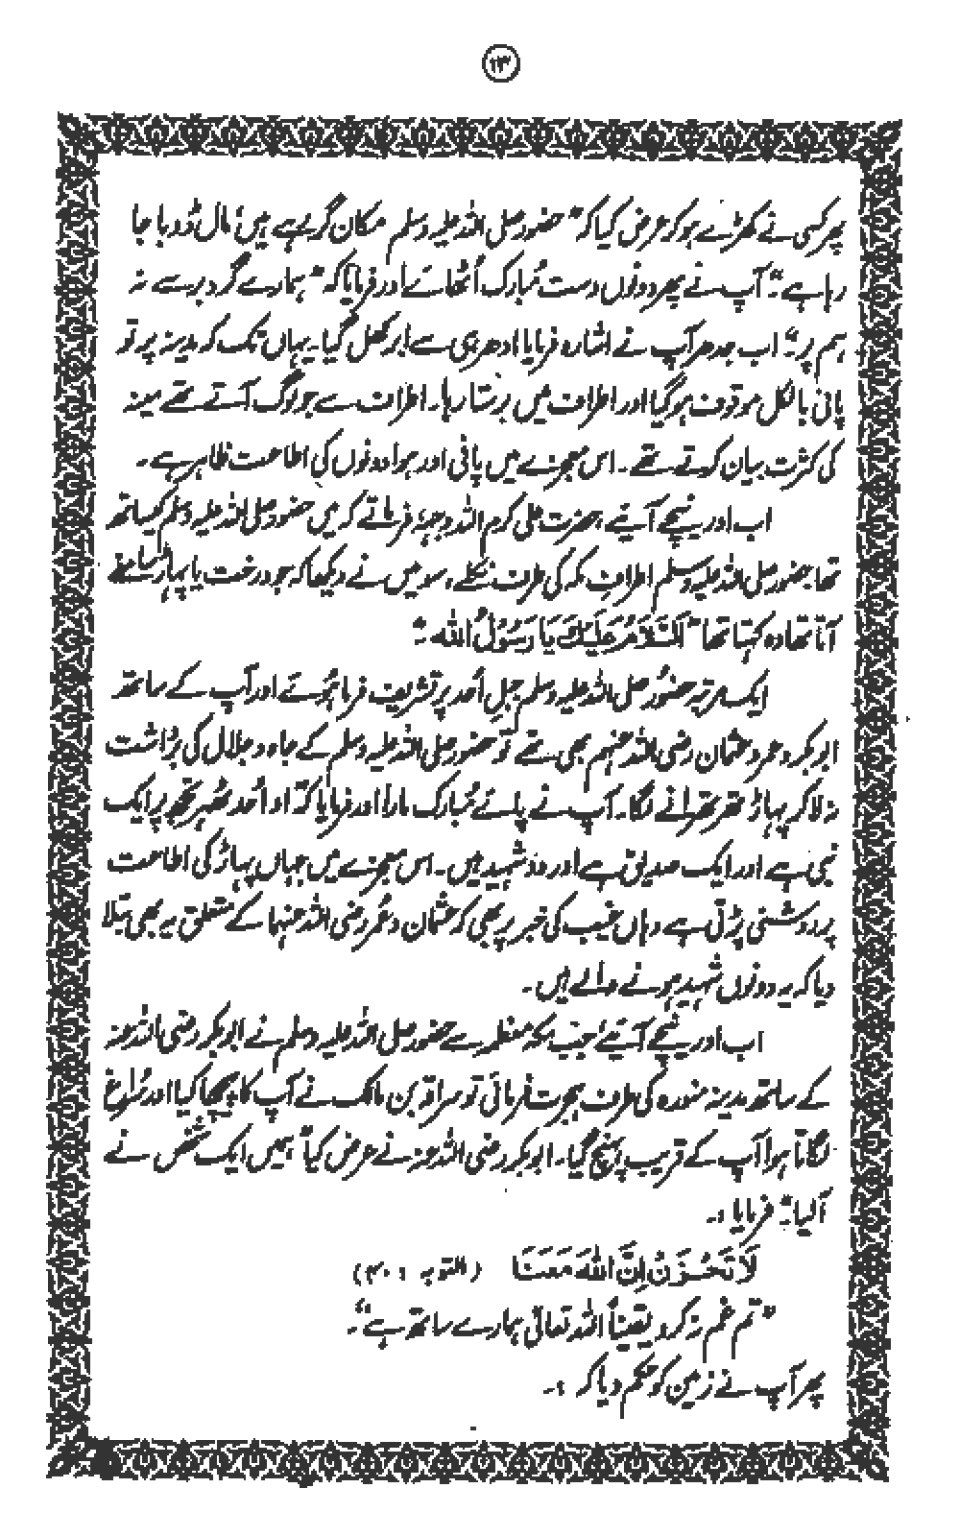 ۱۳
پھر کسی نے کھڑے ہو کر عرض کیا کہ "حضور صلی اللہ علیہ وسلم مکان گر رہے ہیں، مال ڈوبا جا
رہا ہے"۔ آپ نے پھر دونوں دست مُبارک اُٹھائے اور فرمایا کہ "ہمارے گرد برسے نہ
ہم پر"۔ اب جدھر آپ نے اشارہ فرمایا ادھر ہی سے ابر کھل گیا۔ یہاں تک کہ مدینہ پر تو
پانی بالکل موقوف ہو گیا اور اطراف میں برستا رہا۔ اطراف سے جو لوگ آتے تھے مینہ
کی کثرت بیان کرتے تھے۔ اس معجزے میں پانی اور ہوا دونوں کی اطاعت ظاہر ہے۔
اب اور نیچے آئیے، حضرت علی کرم اللہ وجہہ، فرماتے کہ میں حضور صلی اللہ علیہ وسلم کیساتھ
تھا حضور صلی اللہ علیہ وسلم اطراف مکہ کی طرف نکلے، سو میں نے دیکھا کہ جو درخت یا پہاڑ سامنے
آتا تھا وہ کہتا تھا "اَلسَّلَامُ عَلَیْکَ یَا رَسُوْلُ اللہ"۔
ایک مرتبہ حضُور صلی اللہ علیہ وسلم جبلِ اُحد پر تشریف فرما ہُوئے اور آپ کے ساتھ
ابوبکر و عمر و عثمان رضی اللہ عنہم بھی تھے تو حضور صلی اللہ علیہ وسلم کے جاہ و جلال کی برداشت
نہ لا کر پہاڑ تھر تھرانے لگا۔ آپ نے پائے مُبارک مارا اور فرمایا کہ "او اُحد ٹھہر تجھ پر ایک
نبی ہے اور ایک صدیق ہے اور دو شہید ہیں۔ اس معجزے میں جہاں پہاڑ کی اطاعت
پر روشنی پڑتی ہے وہاں غیب کی خبر پر بھی کہ عثمان و عمر رضی اللہ عنہما کے متعلق یہ بھی بتلا
دیا کہ یہ دونوں شہید ہونے والے ہیں۔
اب اور نیچے آئیے، جب مکہ معظمہ سے حضور صلی اللہ علیہ وسلم نے ابوبکر رضی اللہ عنہ
کے ساتھ مدینہ منورہ کی طرف ہجرت فرمائی تو سراقہ بن مالک نے آپ کا پیچھا کیا اور سُراغ
لگاتا ہوا آپ کے قریب پہنچ گیا۔ ابوبکر رضی اللہ عنہ نے عرض کیا "ہمیں ایک شخص نے
آلیا"۔ فرمایا :۔
لَا تَحْزَنْ اِنَّ اللّٰہَ مَعَنَا (التوبہ : ۴۰)
"تم غم نہ کرو یقیناً اللہ تعالیٰ ہمارے ساتھ ہے"۔
پھر آپ نے زمین کو حکم دیا کہ :۔